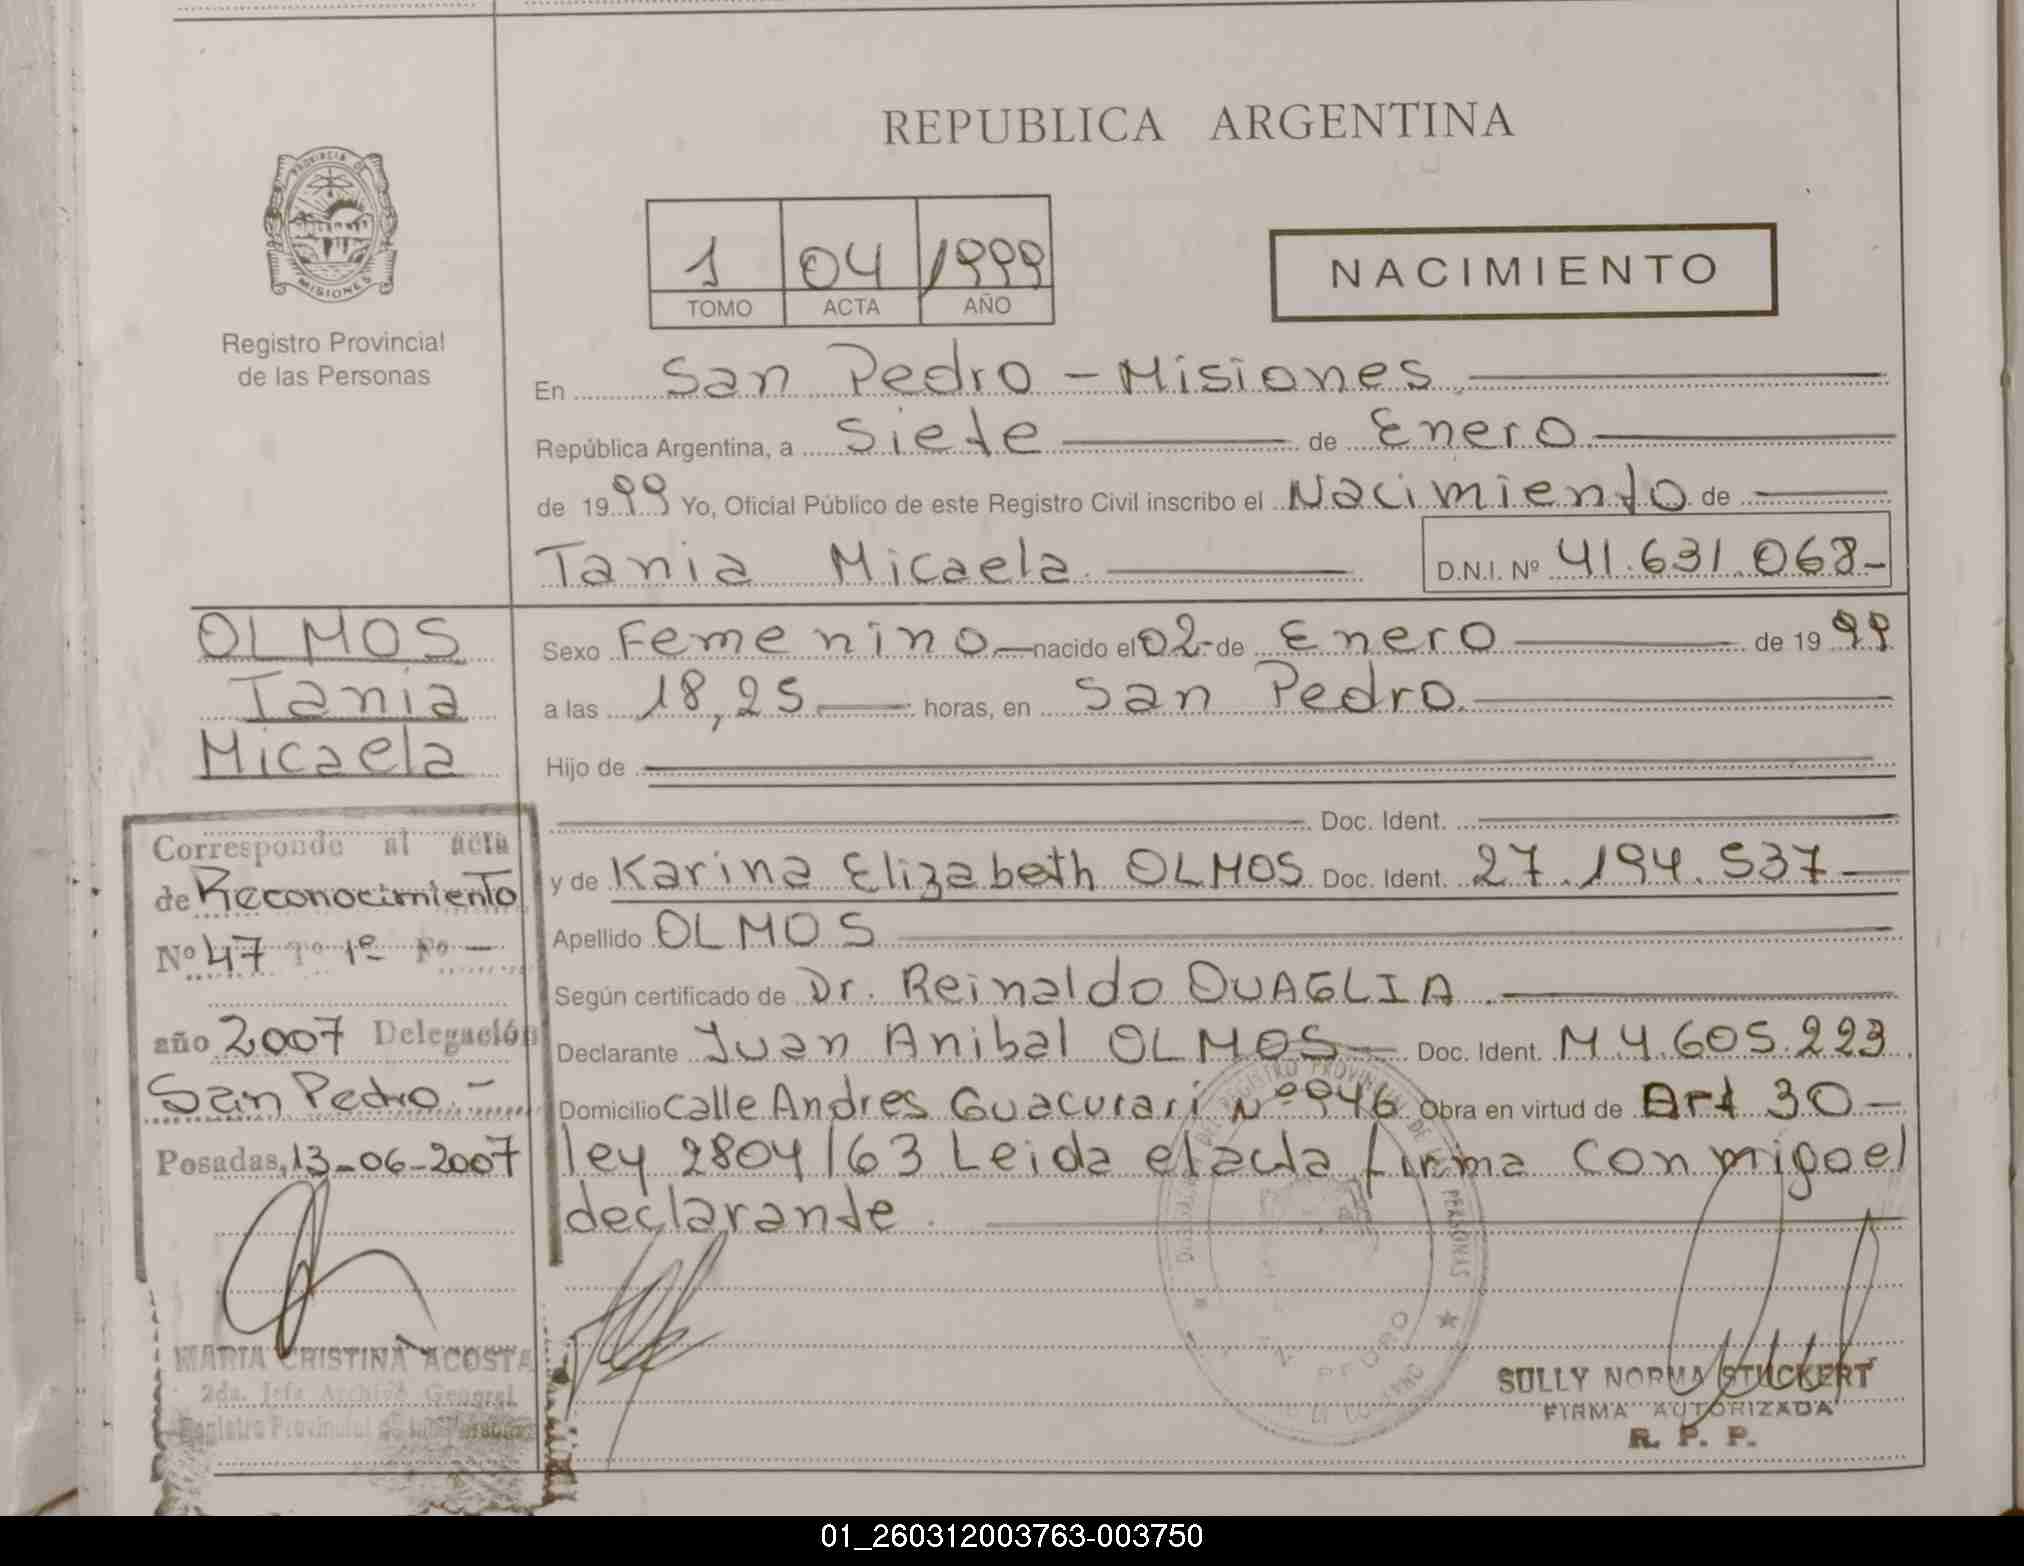 REPUBLICA ARGENTINA
PROVINCIA DE
MISIONES
Registro Provincial
de las Personas
1 04 1999
TOMO ACTA AÑO
NACIMIENTO
En San Pedro - Misiones
República Argentina, a Siete de Enero
de 1999 Yo, Oficial Público de este Registro Civil inscribo el Nacimiento de
Tania Micaela D.N.I. Nº 41.631.068-
OLMOS
Tania
Micaela
Sexo Femenino nacido el 02 de Enero de 1999
a las 18,25 horas, en San Pedro
Hijo de
Doc. Ident.
y de Karina Elizabeth OLMOS Doc. Ident. 27.194.537
Apellido OLMOS
Según certificado de Dr. Reinaldo OUAGLIA
Declarante Juan Anibal OLMOS Doc. Ident. M 4.605.223
Domicilio calle Andres Guacurari Nº 946 Obra en virtud de Art 30
ley 2804/63 Leida el acta firma conmigo el
declarante
Corresponde al acta
de Reconocimiento
Nº 47 Tº 1º Fº -
año 2007 Delegación
San Pedro.-
Posadas, 13-06-2007
MARIA CRISTINA ACOSTA
2da. Jefa Archivo General
Registro Provincial de las Personas
SULLY NORMA STUCKERT
FIRMA AUTORIZADA
R. P. P.
01_260312003763-003750